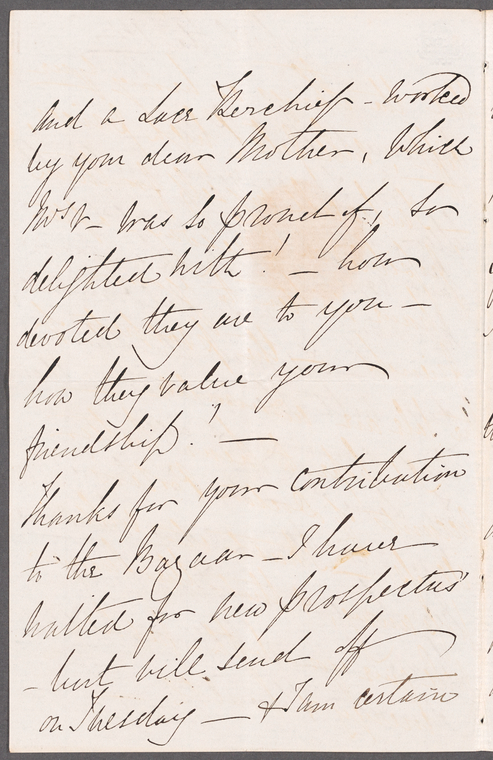 and a Lace Kerchief - worked
by your dear Mother, Which
was so proud of, so
delighted with! - how
devoted they are to you -
how they value your
friendship! -
Thanks for your contribution
to the Bazaar - I have
halted for new prospectus'
- but will send off
on Tuesday - & I am certain